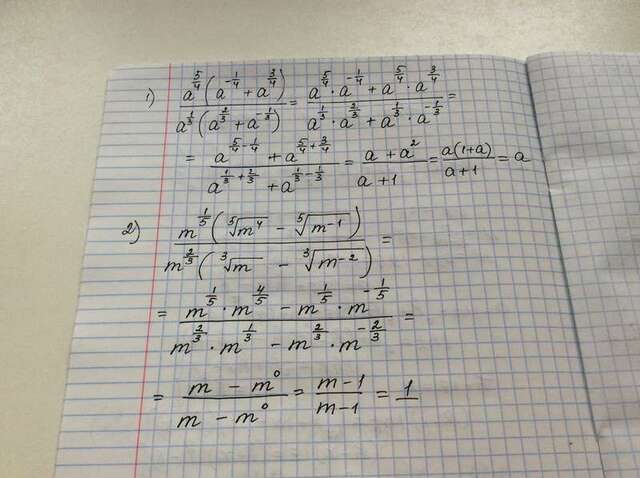 1) a^(5/4) (a^(-1/4) + a^(3/4)) / a^(1/3) (a^(2/3) + a^(-1/3)) = a^(5/4) · a^(-1/4) + a^(5/4) · a^(3/4) / a^(1/3) · a^(2/3) + a^(1/3) · a^(-1/3) =
= a^(5/4 - 1/4) + a^(5/4 + 3/4) / a^(1/3 + 2/3) + a^(1/3 - 1/3) = a + a² / a + 1 = a(1+a) / a+1 = a
2) m^(1/5) (⁵√m⁴ - ⁵√m⁻¹) / m^(2/3) (³√m - ³√m⁻²) =
= m^(1/5) · m^(4/5) - m^(1/5) · m^(-1/5) / m^(2/3) · m^(1/3) - m^(2/3) · m^(-2/3) =
= m - m⁰ / m - m⁰ = m-1 / m-1 = 1